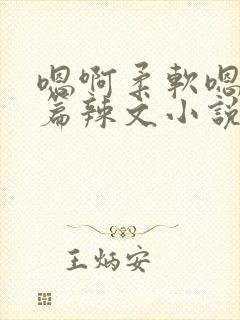 嗯啊柔軟嗯
篇辣文小說
王炳安